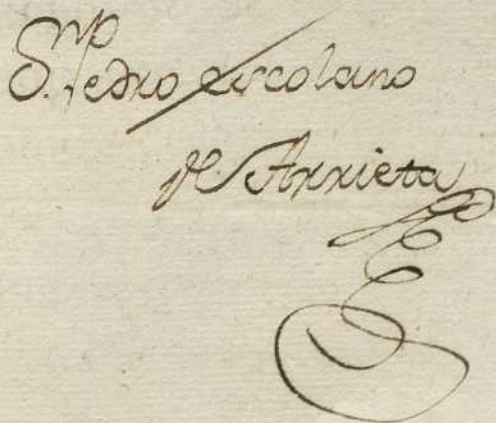 D.n Pedro Escolano
de Arrieta